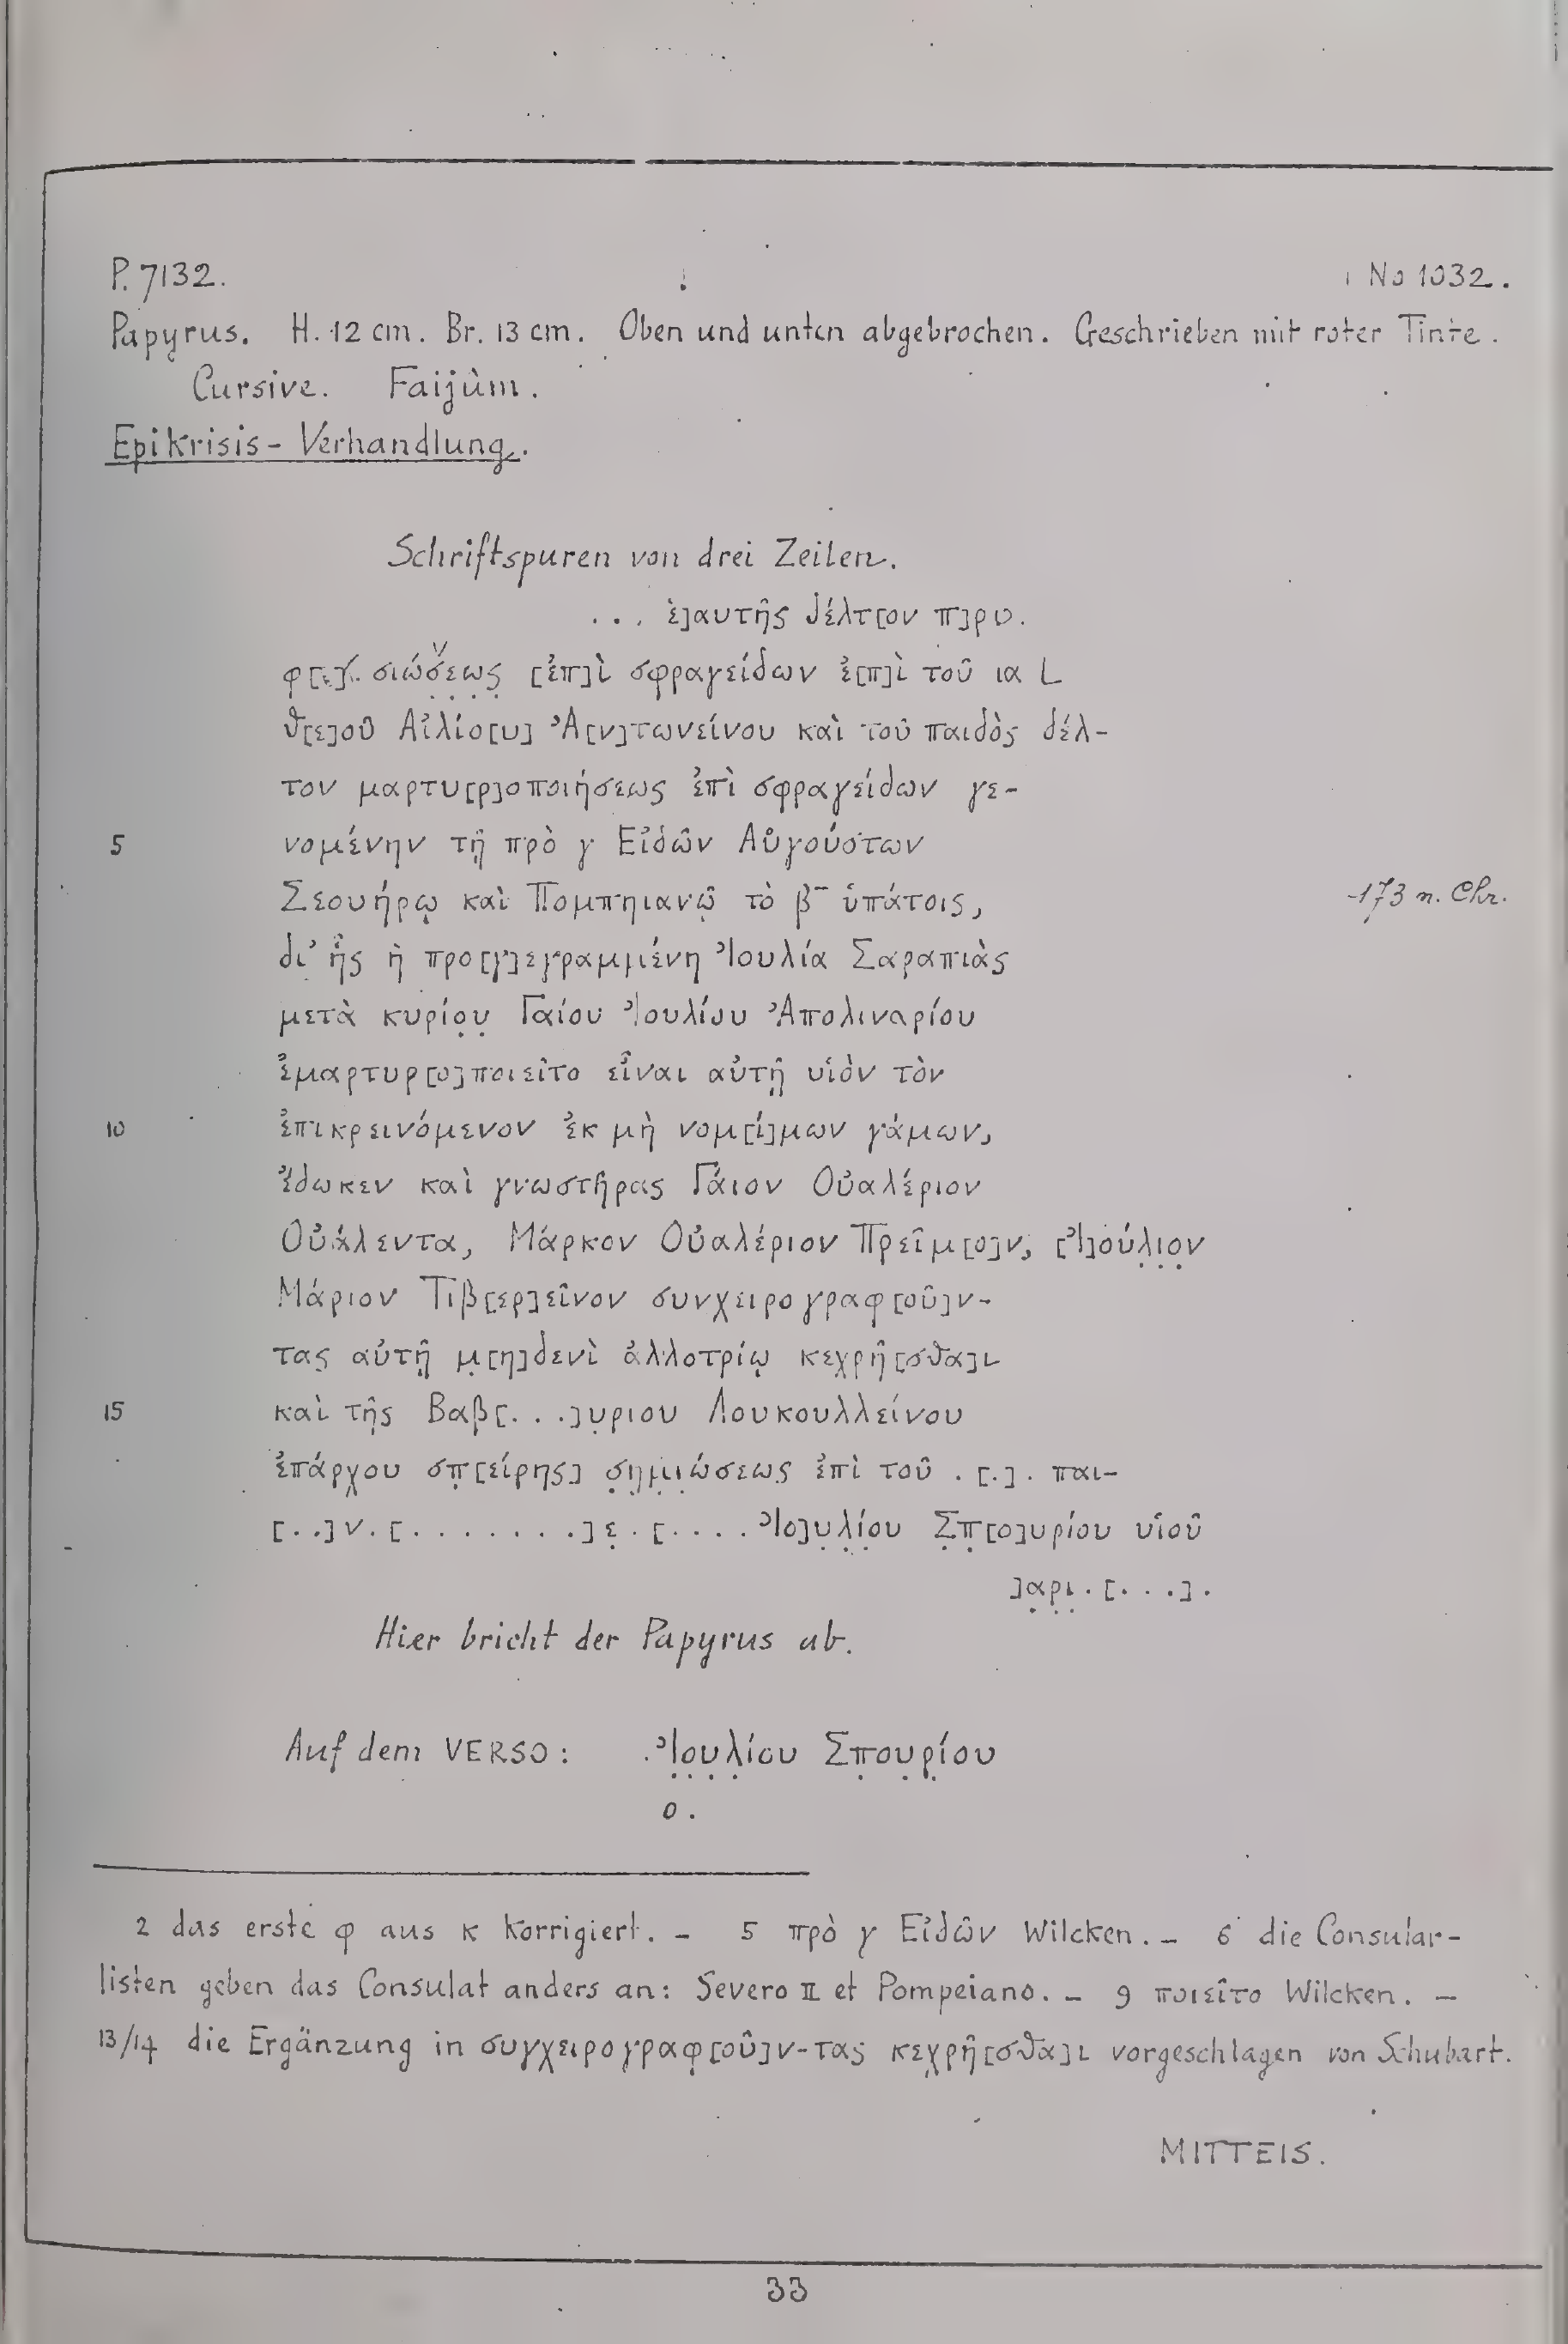 P. 7132.
No 1032.
Papyrus. H. 12 cm. Br. 13 cm. Oben und unten abgebrochen. Geschrieben mit roter Tinte.
Cursive. Faijûm.
Epikrisis-Verhandlung.
Schriftspuren von drei Zeilen.
... ἑ]αυτῆς δέλτ[ον π]ρο.
[ἐπ]ὶ σφραγείδων ἐ[π]ὶ τοῦ ια L
θ[ε]οῦ Αἰλίο[υ] Ἀ[ν]τωνείνου καὶ τοῦ παιδὸς δέλ-
τον μαρτυ[ρ]οποιήσεως ἐπὶ σφραγείδων γε-
5 νομένην τῇ πρὸ γ Εἰδῶν Αὐγούστων
Σεουήρῳ καὶ Πομπηιανῷ τὸ β‾ ὑπάτοις,
173 n. Chr.
δι' ἧς ἡ προ[γ]εγραμμένη Ἰουλία Σαραπιὰς
μετὰ κυρίο̣υ̣ Γαίου Ἰουλίου Ἀπολιναρίου
ἐμαρτυρ[ο]ποιεῖτο εἶναι αὐτῇ υἱὸν τὸν
10 ἐπικρεινόμενον ἐκ μὴ νομ[ί]μων γάμων,
ἔδωκεν καὶ γνωστῆρας Γάιον Οὐαλέριον
Οὐάλεντα, Μάρκον Οὐαλέριον Πρεῖμ[ο]ν, [Ἰ]ούλ̣ι̣ο̣ν
Μάριον Τιβ[ερ]εῖνον συνχειρογραφ[οῦ]ν-
τας αὐτῇ μ̣[η]δενὶ ἀλλοτρίῳ κεχρῆ[σθα]ι
15 καὶ τῆς Βαβ[...]υ̣ριου Λουκουλλείνου
ἐπάρχου σπ̣[είρης] σ̣η̣μ̣ι̣ώσεως ἐπὶ τοῦ . [.] . παι-
[..]ν.[........]ε̣.[.... Ἰο]υ̣λ̣ί̣ου Σ̣π̣[ο]υρίου υἱοῦ
]α̣ρ̣ι̣.[...].
Hier bricht der Papyrus ab.
Auf dem VERSO: .Ἰ̣ο̣υ̣λ̣ίου Σπ̣ου̣ρ̣ίου
ο.
2 das erste φ aus κ korrigiert. – 5 πρὸ γ Εἰδῶν Wilcken. – 6 die Consular-
listen geben das Consulat anders an: Severo II et Pompeiano. – 9 ποιεῖτο Wilcken. –
13/14 die Ergänzung in συγχειρογραφ̣[οῦ]ν-τας κεχρῆ[σθα]ι vorgeschlagen von Schubart.
MITTEIS.
33